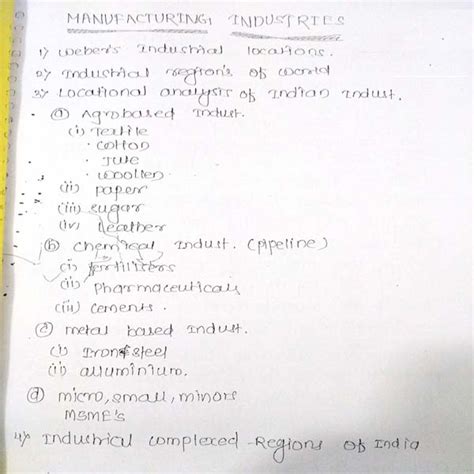 MANUFACTURING INDUSTRIES
1) Weber's Industrial locations.
2) Industrial region's of world
3) Locational analysis of Indian Indust.
(a) Agrobased Indust.
(i) Textile
• cotton
• Jute
• woollen
(ii) paper
(iii) sugar
(iv) Leather
(b) chemical Indust. (pipeline)
(i) fertilizers
(ii) pharmaceuticals
(iii) cements.
(c) metal based Indust.
(i) Iron & steel
(ii) alluminium.
(d) micro, small, minors
MSME's
4) Industrical complexed Regions of India